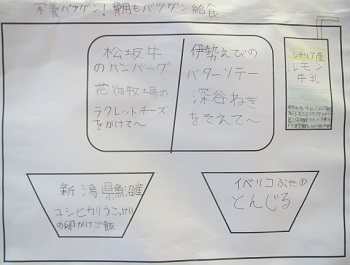 栄養バツグン！費用もバツグン給食
松坂牛
のハンバーグ
花畑牧場の
ラクレットチーズ
をかけて〜
伊勢えびの
バターソテー
深谷ねぎ
をそえて〜
シチリア産
レモン
牛乳
新潟県魚沼産
コシヒカリうこっけい
の卵かけご飯
イベリコぶたの
とんじる